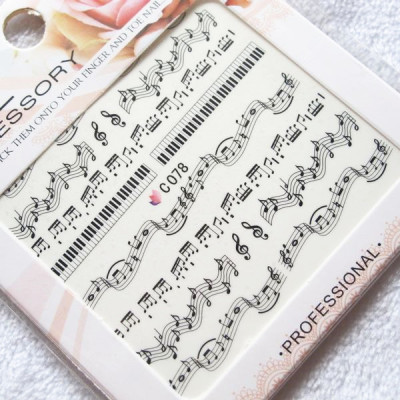 ESSORY
CK THEM ONTO YOUR FINGER AND TOE NAIL
C078
·PROFESSIONAL·